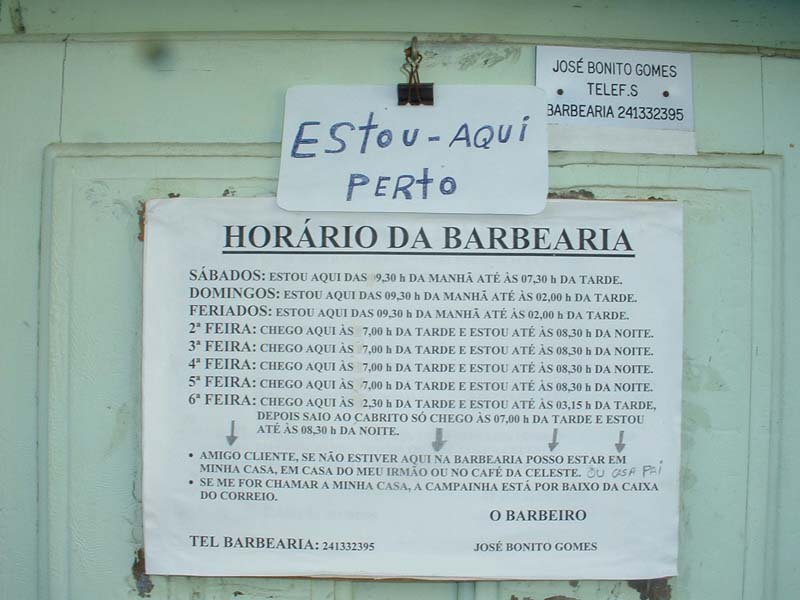 JOSÉ BONITO GOMES
TELEF.S
BARBEARIA 241332395
ESTOU-AQUI
PERTO
HORÁRIO DA BARBEARIA
SÁBADOS: ESTOU AQUI DAS 9,30 h DA MANHÃ ATÉ ÀS 07,30 h DA TARDE.
DOMINGOS: ESTOU AQUI DAS 09,30 h DA MANHÃ ATÉ ÀS 02,00 h DA TARDE.
FERIADOS: ESTOU AQUI DAS 09,30 h DA MANHÃ ATÉ ÀS 02,00 h DA TARDE.
2ª FEIRA: CHEGO AQUI ÀS 7,00 h DA TARDE E ESTOU ATÉ ÀS 08,30 h DA NOITE.
3ª FEIRA: CHEGO AQUI ÀS 7,00 h DA TARDE E ESTOU ATÉ ÀS 08,30 h DA NOITE.
4ª FEIRA: CHEGO AQUI ÀS 7,00 h DA TARDE E ESTOU ATÉ ÀS 08,30 h DA NOITE.
5ª FEIRA: CHEGO AQUI ÀS 7,00 h DA TARDE E ESTOU ATÉ ÀS 08,30 h DA NOITE.
6ª FEIRA: CHEGO AQUI ÀS 2,30 h DA TARDE E ESTOU ATÉ ÀS 03,15 h DA TARDE,
DEPOIS SAIO AO CABRITO SÓ CHEGO ÀS 07,00 h DA TARDE E ESTOU
ATÉ ÀS 08,30 h DA NOITE.
• AMIGO CLIENTE, SE NÃO ESTIVER AQUI NA BARBEARIA POSSO ESTAR EM
MINHA CASA, EM CASA DO MEU IRMÃO OU NO CAFÉ DA CELESTE. OU CASA PAI
• SE ME FOR CHAMAR A MINHA CASA, A CAMPAINHA ESTÁ POR BAIXO DA CAIXA
DO CORREIO.
O BARBEIRO
TEL BARBEARIA: 241332395 JOSÉ BONITO GOMES